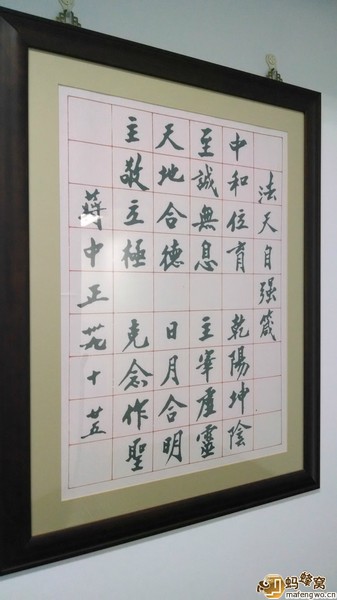 法天自强箴
中和位育 乾陽坤陰
至誠無息 主宰虛靈
天地合德 日月合明
主敬立極 克念作聖
蔣中正 十 廿五
蚂蜂窝
mafengwo.cn